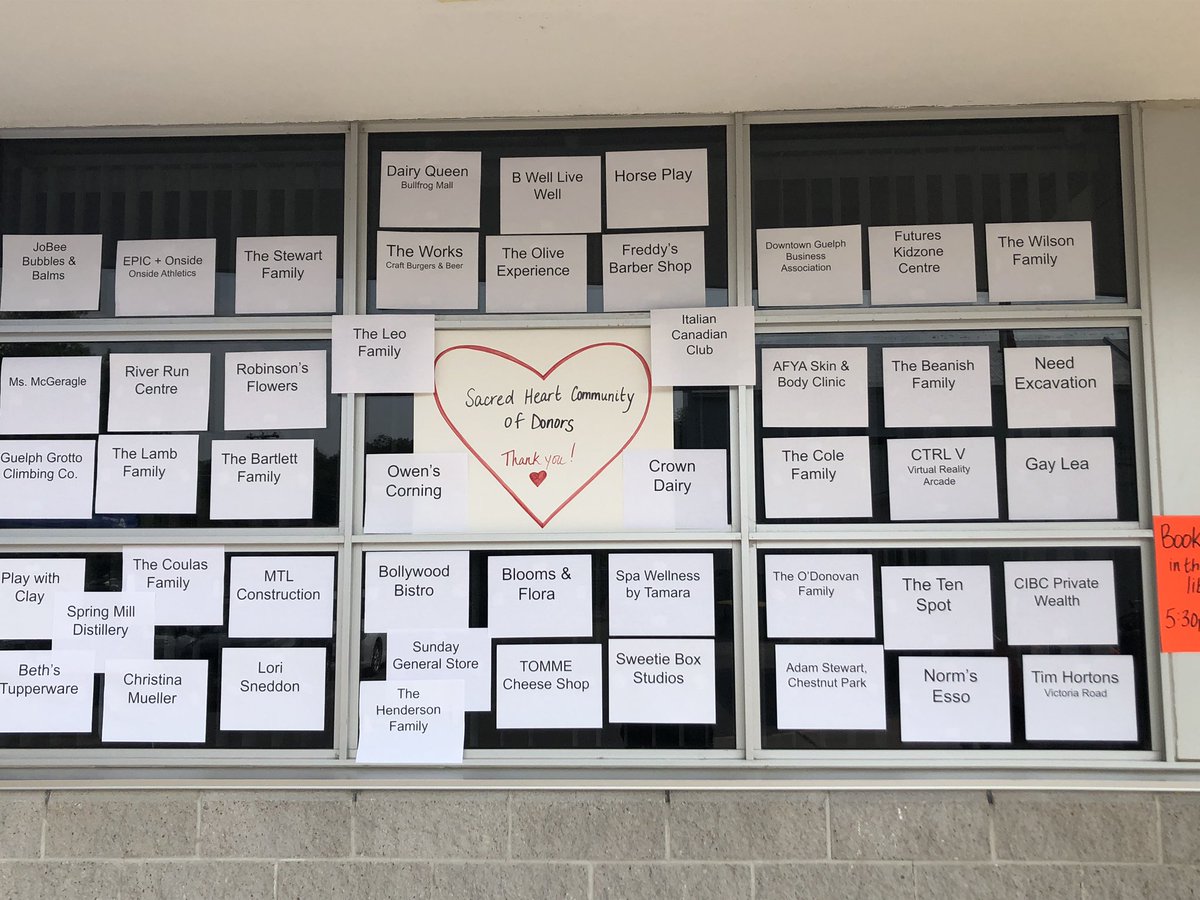 Dairy Queen
Bullfrog Mall
B Well Live
Well
Horse Play
JoBee
Bubbles &
Balms
EPIC + Onside
Onside Athletics
The Stewart
Family
The Works
Craft Burgers & Beer
The Olive
Experience
Freddy's
Barber Shop
Downtown Guelph
Business
Association
Futures
Kidzone
Centre
The Wilson
Family
The Leo
Family
Italian
Canadian
Club
Ms. McGeragle
River Run
Centre
Robinson's
Flowers
Sacred Heart Community
of Donors
Thank you!
AFYA Skin &
Body Clinic
The Beanish
Family
Need
Excavation
Guelph Grotto
Climbing Co.
The Lamb
Family
The Bartlett
Family
Owen's
Corning
Crown
Dairy
The Cole
Family
CTRL V
Virtual Reality
Arcade
Gay Lea
Play with
Clay
The Coulas
Family
MTL
Construction
Spring Mill
Distillery
Bollywood
Bistro
Blooms &
Flora
Spa Wellness
by Tamara
The O'Donovan
Family
The Ten
Spot
CIBC Private
Wealth
Beth's
Tupperware
Christina
Mueller
Lori
Sneddon
Sunday
General Store
The
Henderson
Family
TOMME
Cheese Shop
Sweetie Box
Studios
Adam Stewart,
Chestnut Park
Norm's
Esso
Tim Hortons
Victoria Road
Book
in th
li
5:30p